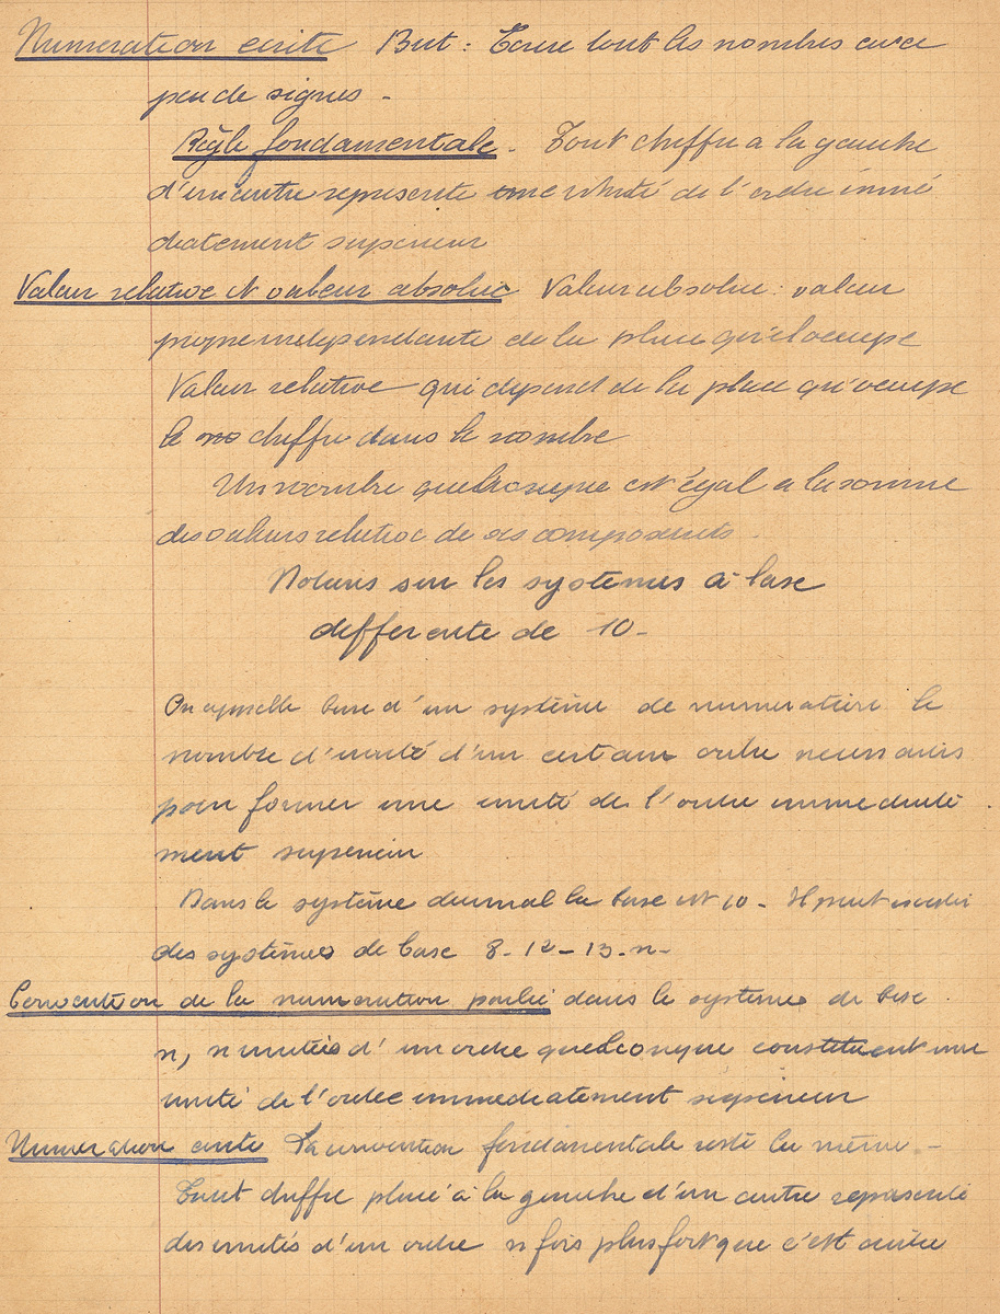 Numeration ecrite But : Ecrire tout les nombres avec
peu de signes -
Règle fondamentale - Tout chiffre a la gauche
d'un autre represente une unité de l'ordre immé
diatement superieur
Valeur relative et valeur absolue Valeur absolue : valeur
propre independante de la place qu'il occupe
Valeur relative qui depend de la place qu'occupe
le chiffre dans le nombre
Un nombre quelconque est égal a la somme
des valeurs relative de ses composants .
Notions sur les systèmes à base
differente de 10 -
On appelle base d'un système de numeration le
nombre d'unité d'un certain ordre necessaires
pour former une unité de l'ordre immediate
ment superieur
Dans le système decimal la base est 10 - Il peut exister
des systèmes de base 8 - 12 - 13 . n -
Convention de la numeration parlée dans le systeme de base
n, n unités d'un ordre quelconque constituent une
unité de l'ordre immediatement superieur
Numeration ecrite La convention fondamentale reste la même . -
Tout chiffre placé à la gauche d'un autre represente
des unités d'un ordre n fois plus fort que c'est autre